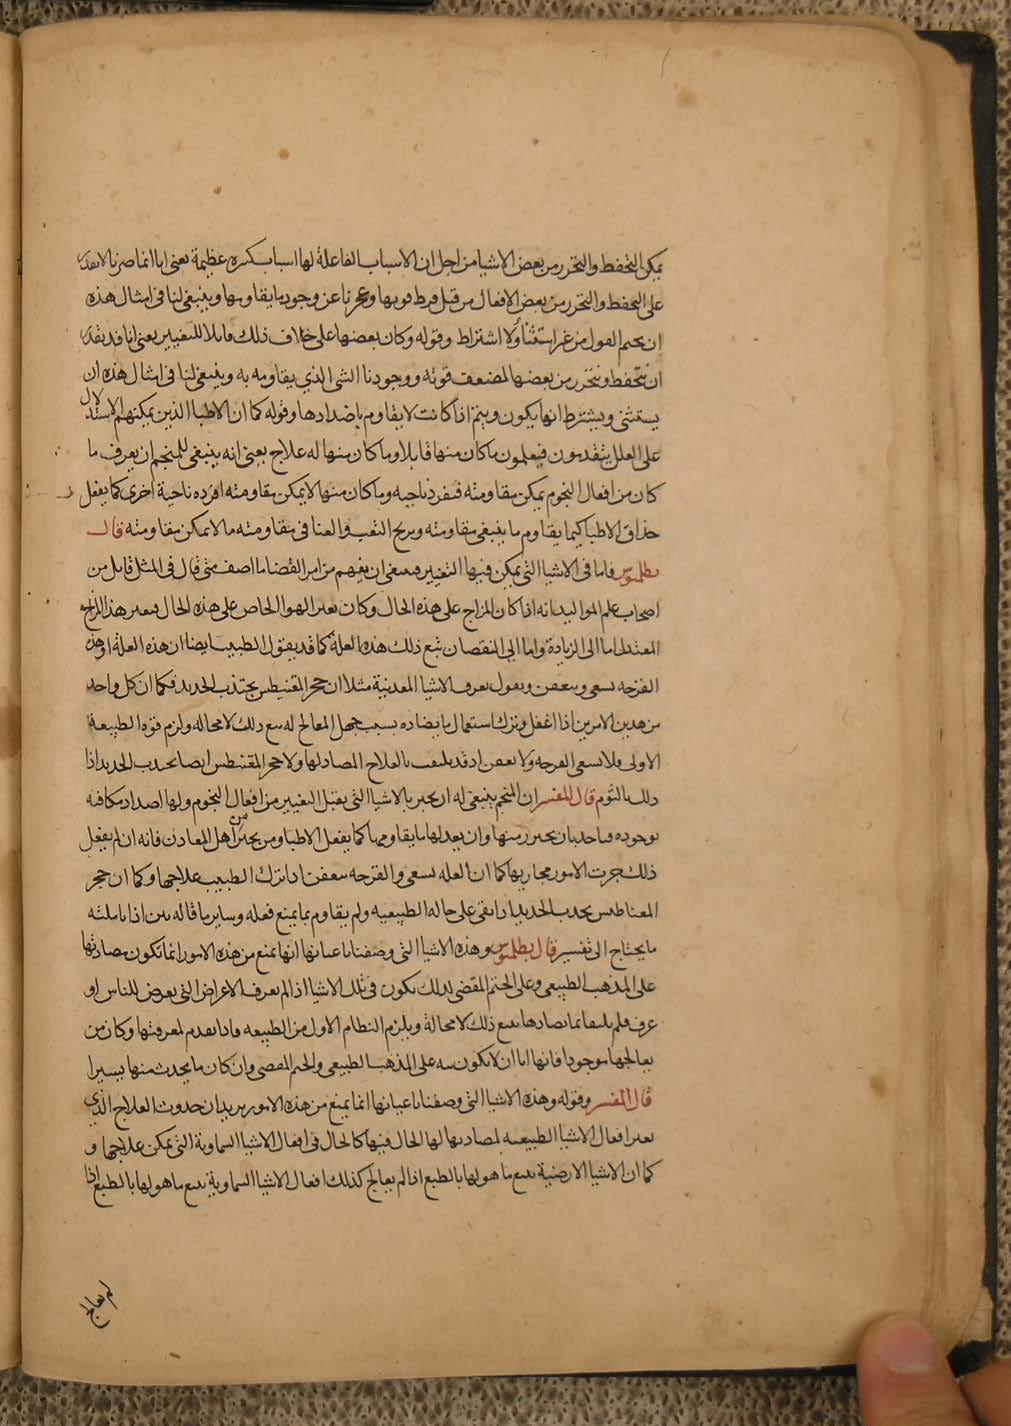 يمكن التحفظ والتحرز من بعض الاشيا من اجل ان الاسباب الفاعلة لها اسباب كثيره عظيمة يعنى انا انما صرنا لا نقدر
على التحفظ والتحرز من بعض الافعال من قبل فرط قوتها وعجزنا عن وجود ما يقاومها وينبغى لنا فى امثال هذه
ان نحتم القول من غير استثنا ولا اشتراط وقوله وكان بعضها على خلاف ذلك قابلا للتغيير يعنى انا قد نقدر
ان نتحفظ ونتحرز من بعضها لضعف قوته ووجودنا الشى الذي يقاومه به وينبغى لنا فى امثال هذه ان
يستثنى ويشترط انها يكون ويتم اذا كانت لا يقاوم باضدادها وقوله كما ان الاطبا الذين يمكنهم الاستدلال
على العلل يتقدمون فيعلمون ما كان منها قابلا وما كان منها له علاج يعنى انه ينبغى للمنجم ان يعرف ما
كان من افعال النجوم يمكن مقاومته فيفرد ناحيه وما كان منها لا يمكن مقاومته افرده ناحية اخرى كما يفعل
حذاق الاطبا كيما يقاوم ما ينبغى مقاومته ويربح التعب والعنا فى مقاومته ما لا يمكن مقاومته قال
بطلميوس فاما فى الاشيا التى يمكن فيها التغيير فينبغى ان يفهم من امر القضا ما اصف متى قال فى المثل قايل من
اصحاب علم المواليد انه اذا كان المزاج على هذه الحال وكان تغير الهوا الخاص على هذه الحال فتغير هذا المزاج
المعتدل اما الى الزيادة واما الى النقصان تبع ذلك هذه العلة كما قد يقول الطبيب ايضا ان هذه العلة او هذه
القرحه تسعى وتتعفن ويقول بعرف الاشيا المعدنية مثلا ان حجر المقنيطس يجتذب الحديد فكما ان كل واحد
من هذين الامرين اذا اغفل وترك استعمال ما يضاده بسبب جهل المعالج له تبع ذلك لا محاله ولزم قوه الطبيعة
الاولى فلا تسعى القرحه ولا تعفن اذ قد يلتقى بالعلاج المضاد لها ولا حجر المقنيطس ايضا يجذب الحديد اذا
دلك بالثوم قال المفسر ان المنجم ينبغى له ان يخبر بالاشيا التى يقبل التغيير من افعال النجوم ولها اضداد مكافيه
موجوده فياخذ بان يحترز منها وان يعد لها ما يقاومها كما يفعل الاطبا ومن يخبر من اهل المعادن فانه ان لم يفعل
ذلك جرت الامور مجاريها كما ان العله تسعى والقرحه تتعفن اذا ترك الطبيب علاجها وكما ان حجر
المغناطيس يجذب الحديد اذا بقى على حاله الطبيعيه ولم يقاوم بما يمنع فعله وساير ما قاله بين اذا تاملته
ما يحتاج الى تفسير قال بطلميوس وهذه الاشيا التى وصفنا باعيانها انها يمنع من هذه الامور انما تكون مضادتها
على المذهب الطبيعى وعلى الحتم المقضى لذلك يكون فى تلك الاشيا اذا لم يعرف الاعراض التى يعرض للناس او
عرف فلم يلتقا بما يضادها تبع ذلك لا محالة ويلزم النظام الاول من الطبيعه فاذا تقدم لمعرفتها وكان من
يعالجها موجودا فانها اما ان لا تكون بته على المذهب الطبيعى والحتم المقضى وان كان ما يحدث منها يسيرا
قال المفسر وقوله وهذه الاشيا التى وصفنا باعيانها انما يمنع من هذه الامور يريد ان حدوث العلاج الذي
يغير افعال الاشيا الطبيعيه لمضادتها لها الحال فيها كالحال فى افعال الاشيا السماوية التى يمكن علاجها و
كما ان الاشيا الارضية تتبع ما هو لها بالطبع اذا لم يعالج كذلك افعال الاشيا السماوية تتبع ما هو لها بالطبع اذا
لم يعالج